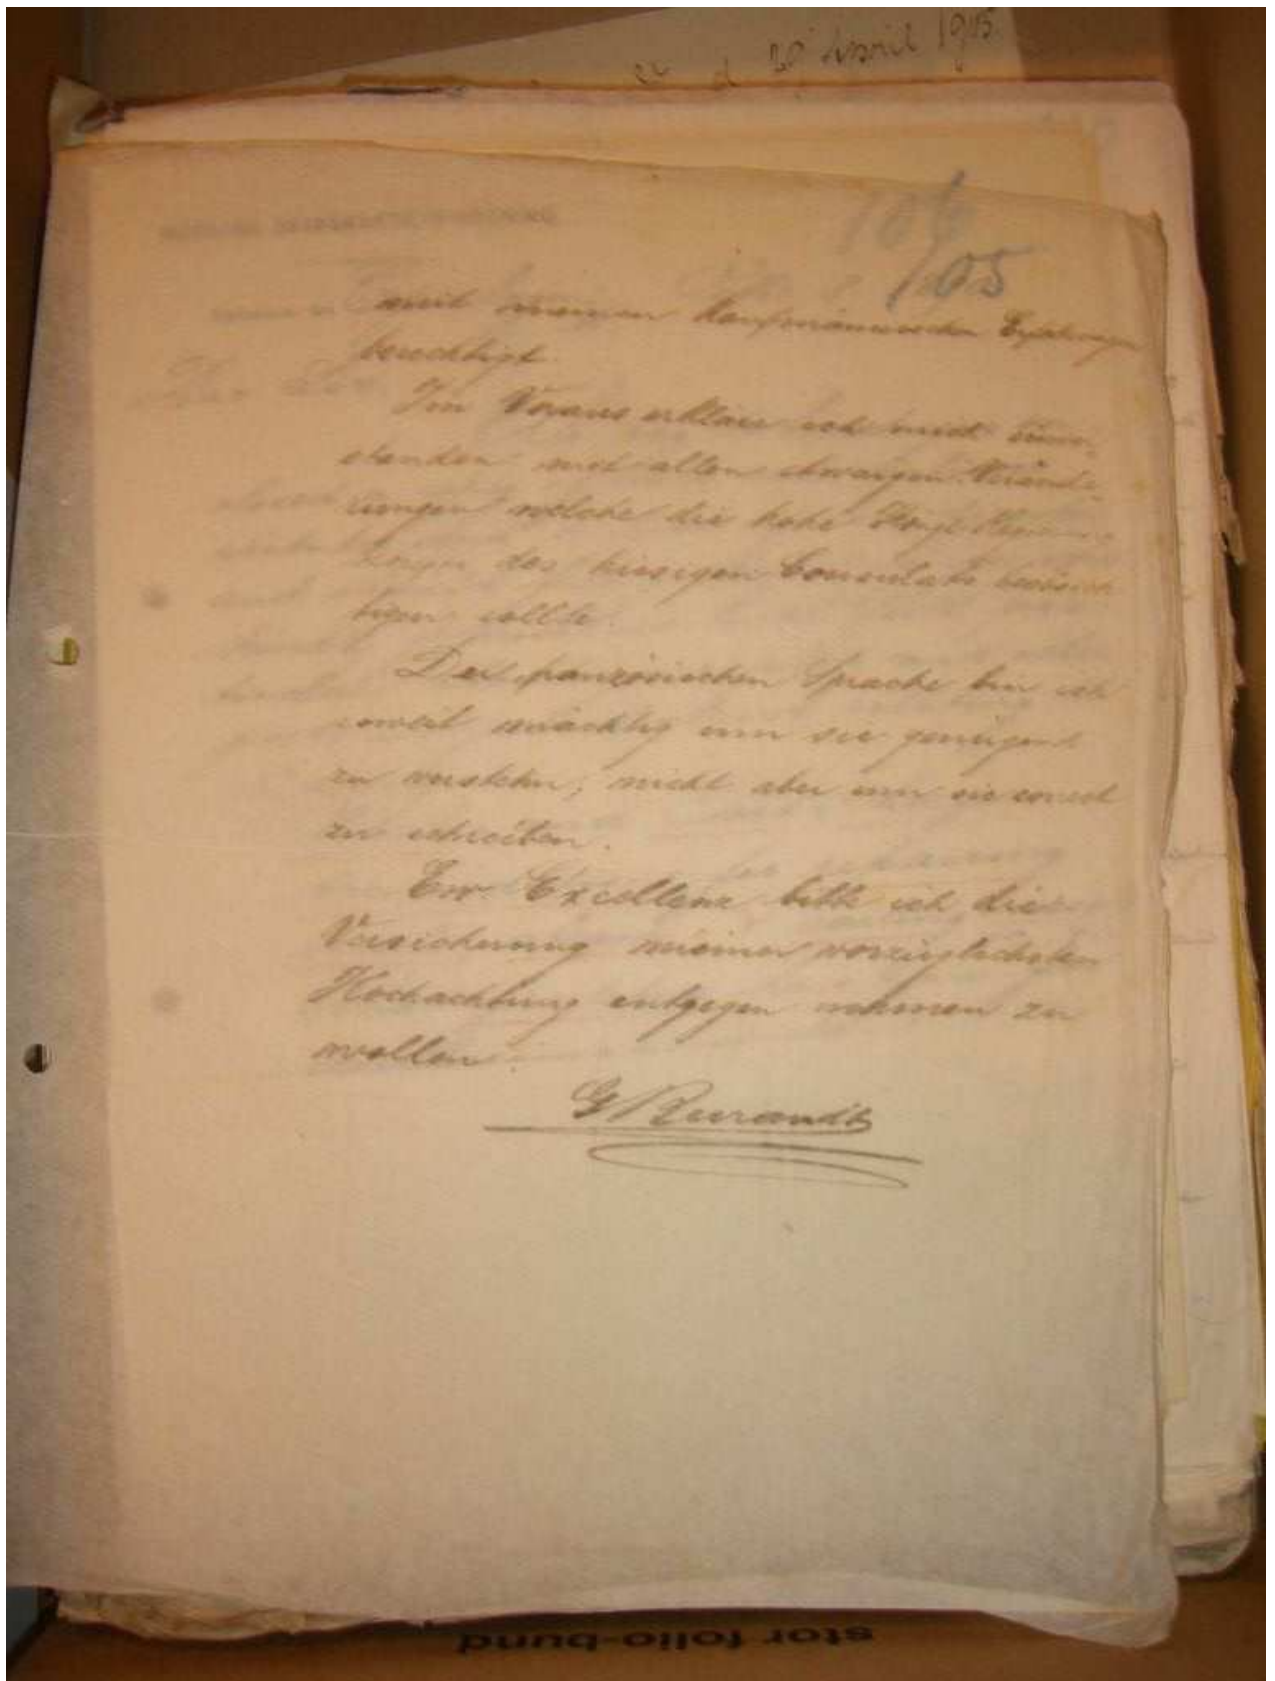 30 April 1905
106/05
mit meinen kaufmännischen Erfahrungen
berechtigt.
Im Voraus erkläre ich mich einver-
standen mit allen etwaigen Verände-
rungen welche die hohe Königl.
wegen des hiesigen Consulats beabsich-
tigen sollte.
Der französischen Sprache bin ich
soweit mächtig um sie genügend
zu verstehn; nicht aber um sie correct
zu schreiben.
Ew. Excellenz bitte ich die
Versicherung meiner vorzüglichsten
Hochachtung entgegen nehmen zu
wollen.
stor folio-bund